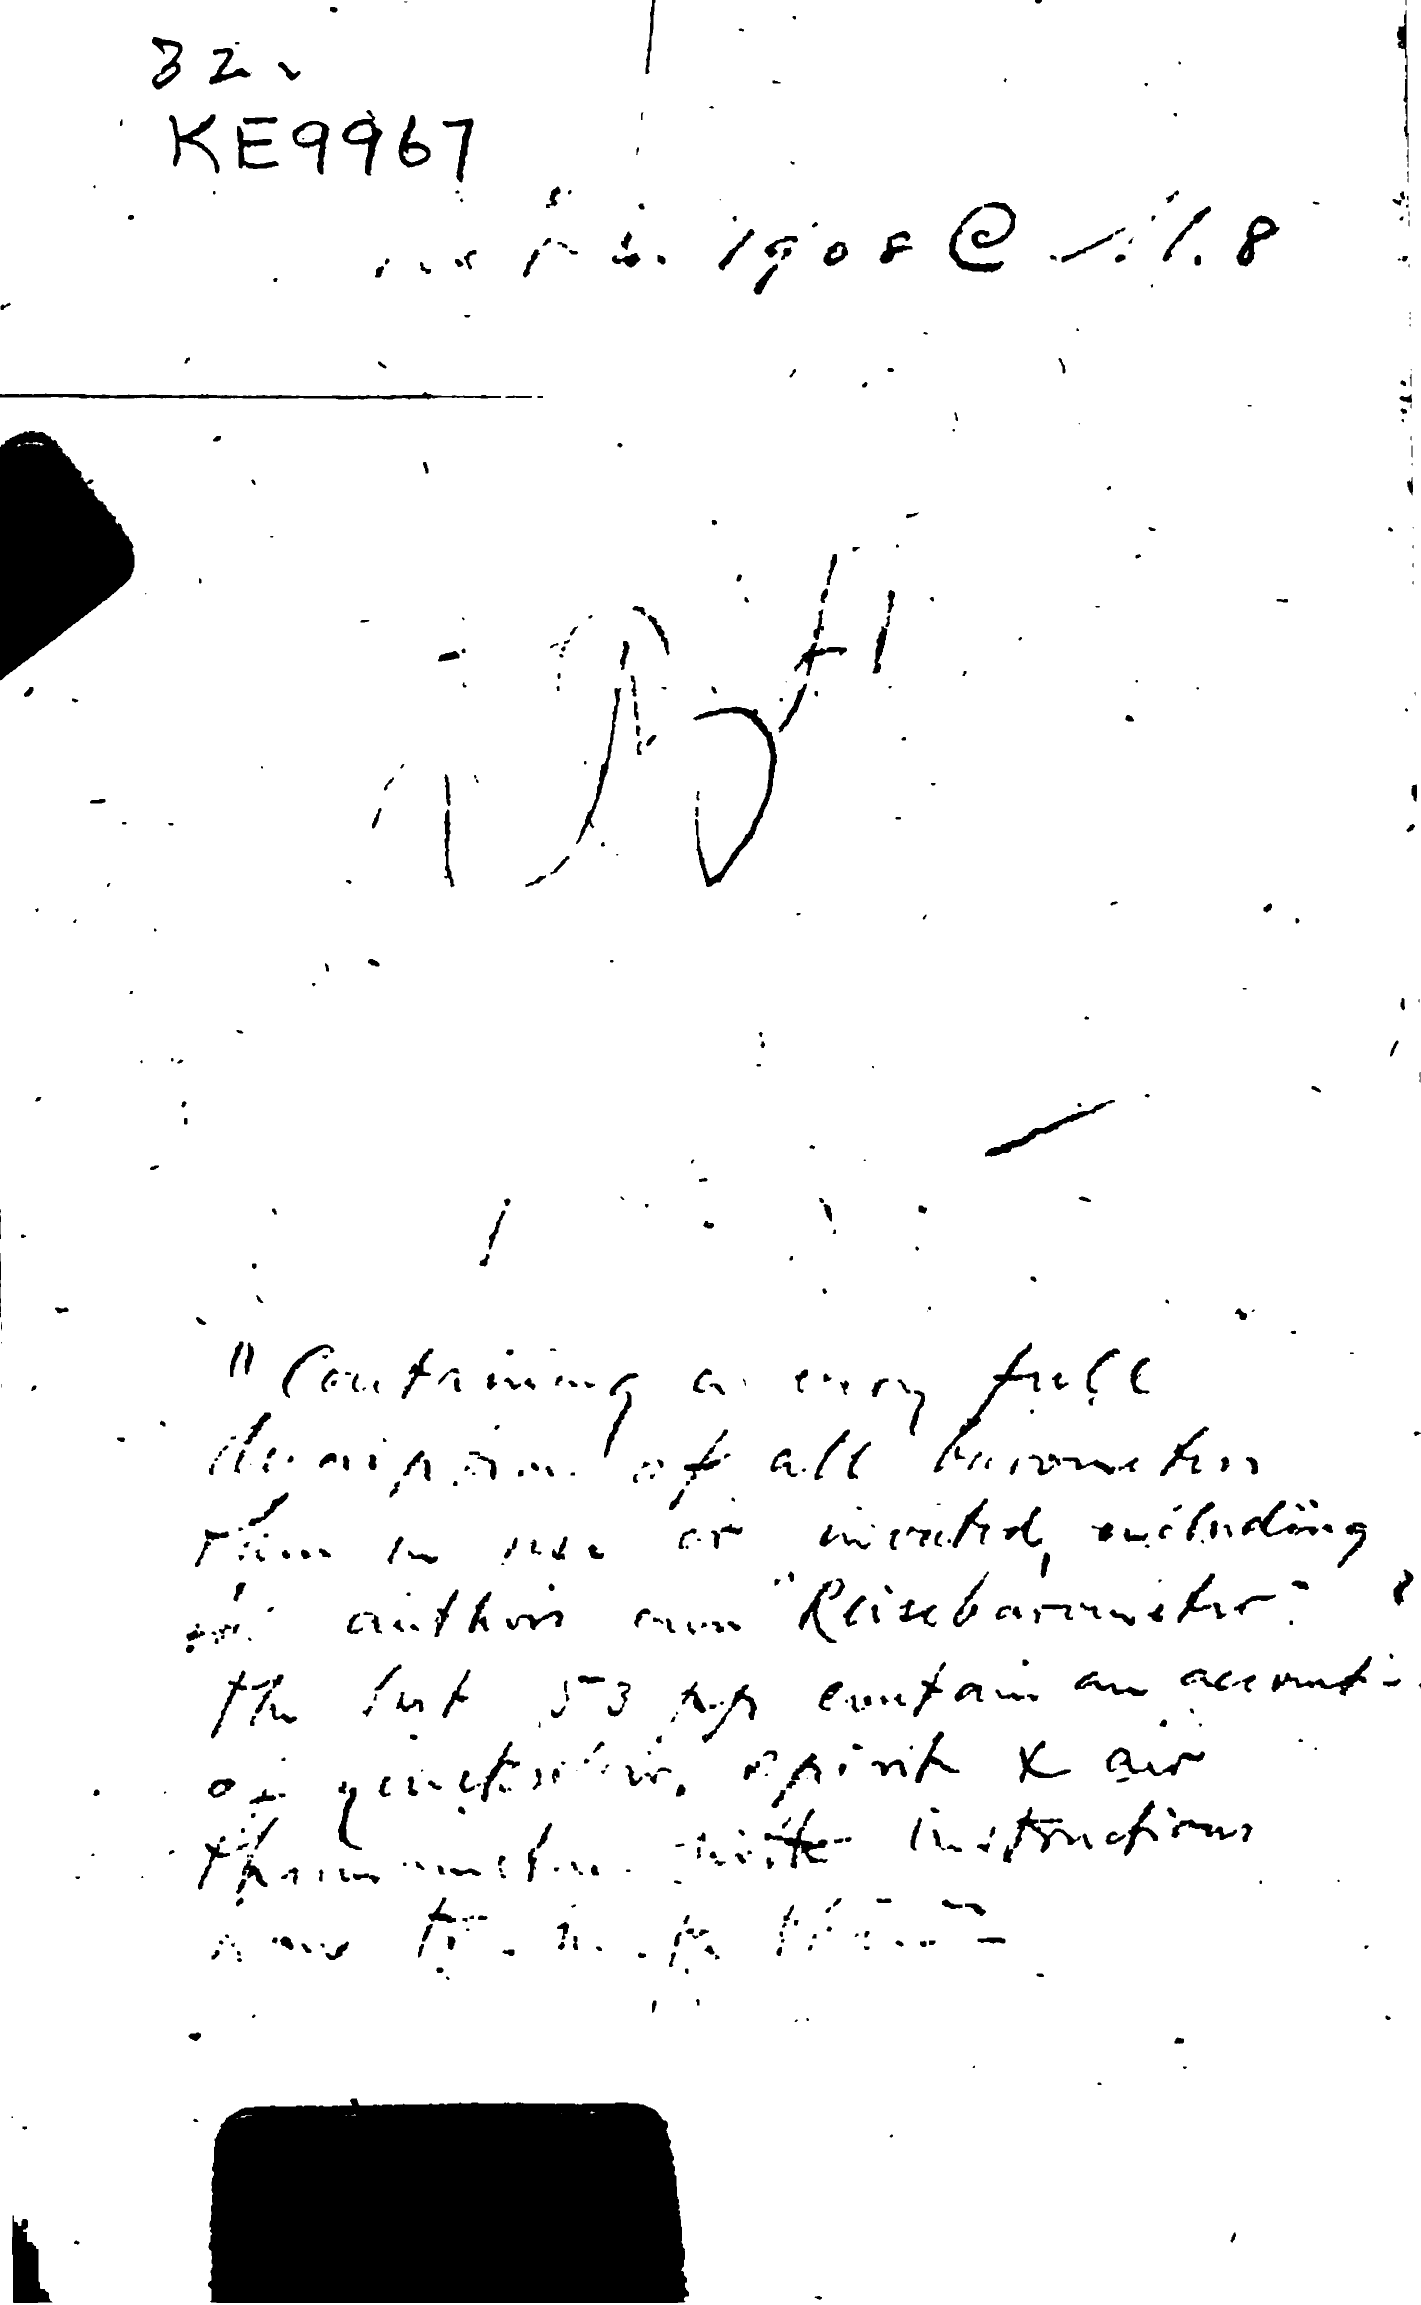 32
KE9967
1908 @
"Containing a very full
description of all barometers
then in use or invented, including
the authors own "Reisebarometer".
The last 53 pp contain an account
of quicksilver, spirit & air
thermometers with instructions
how to make them"